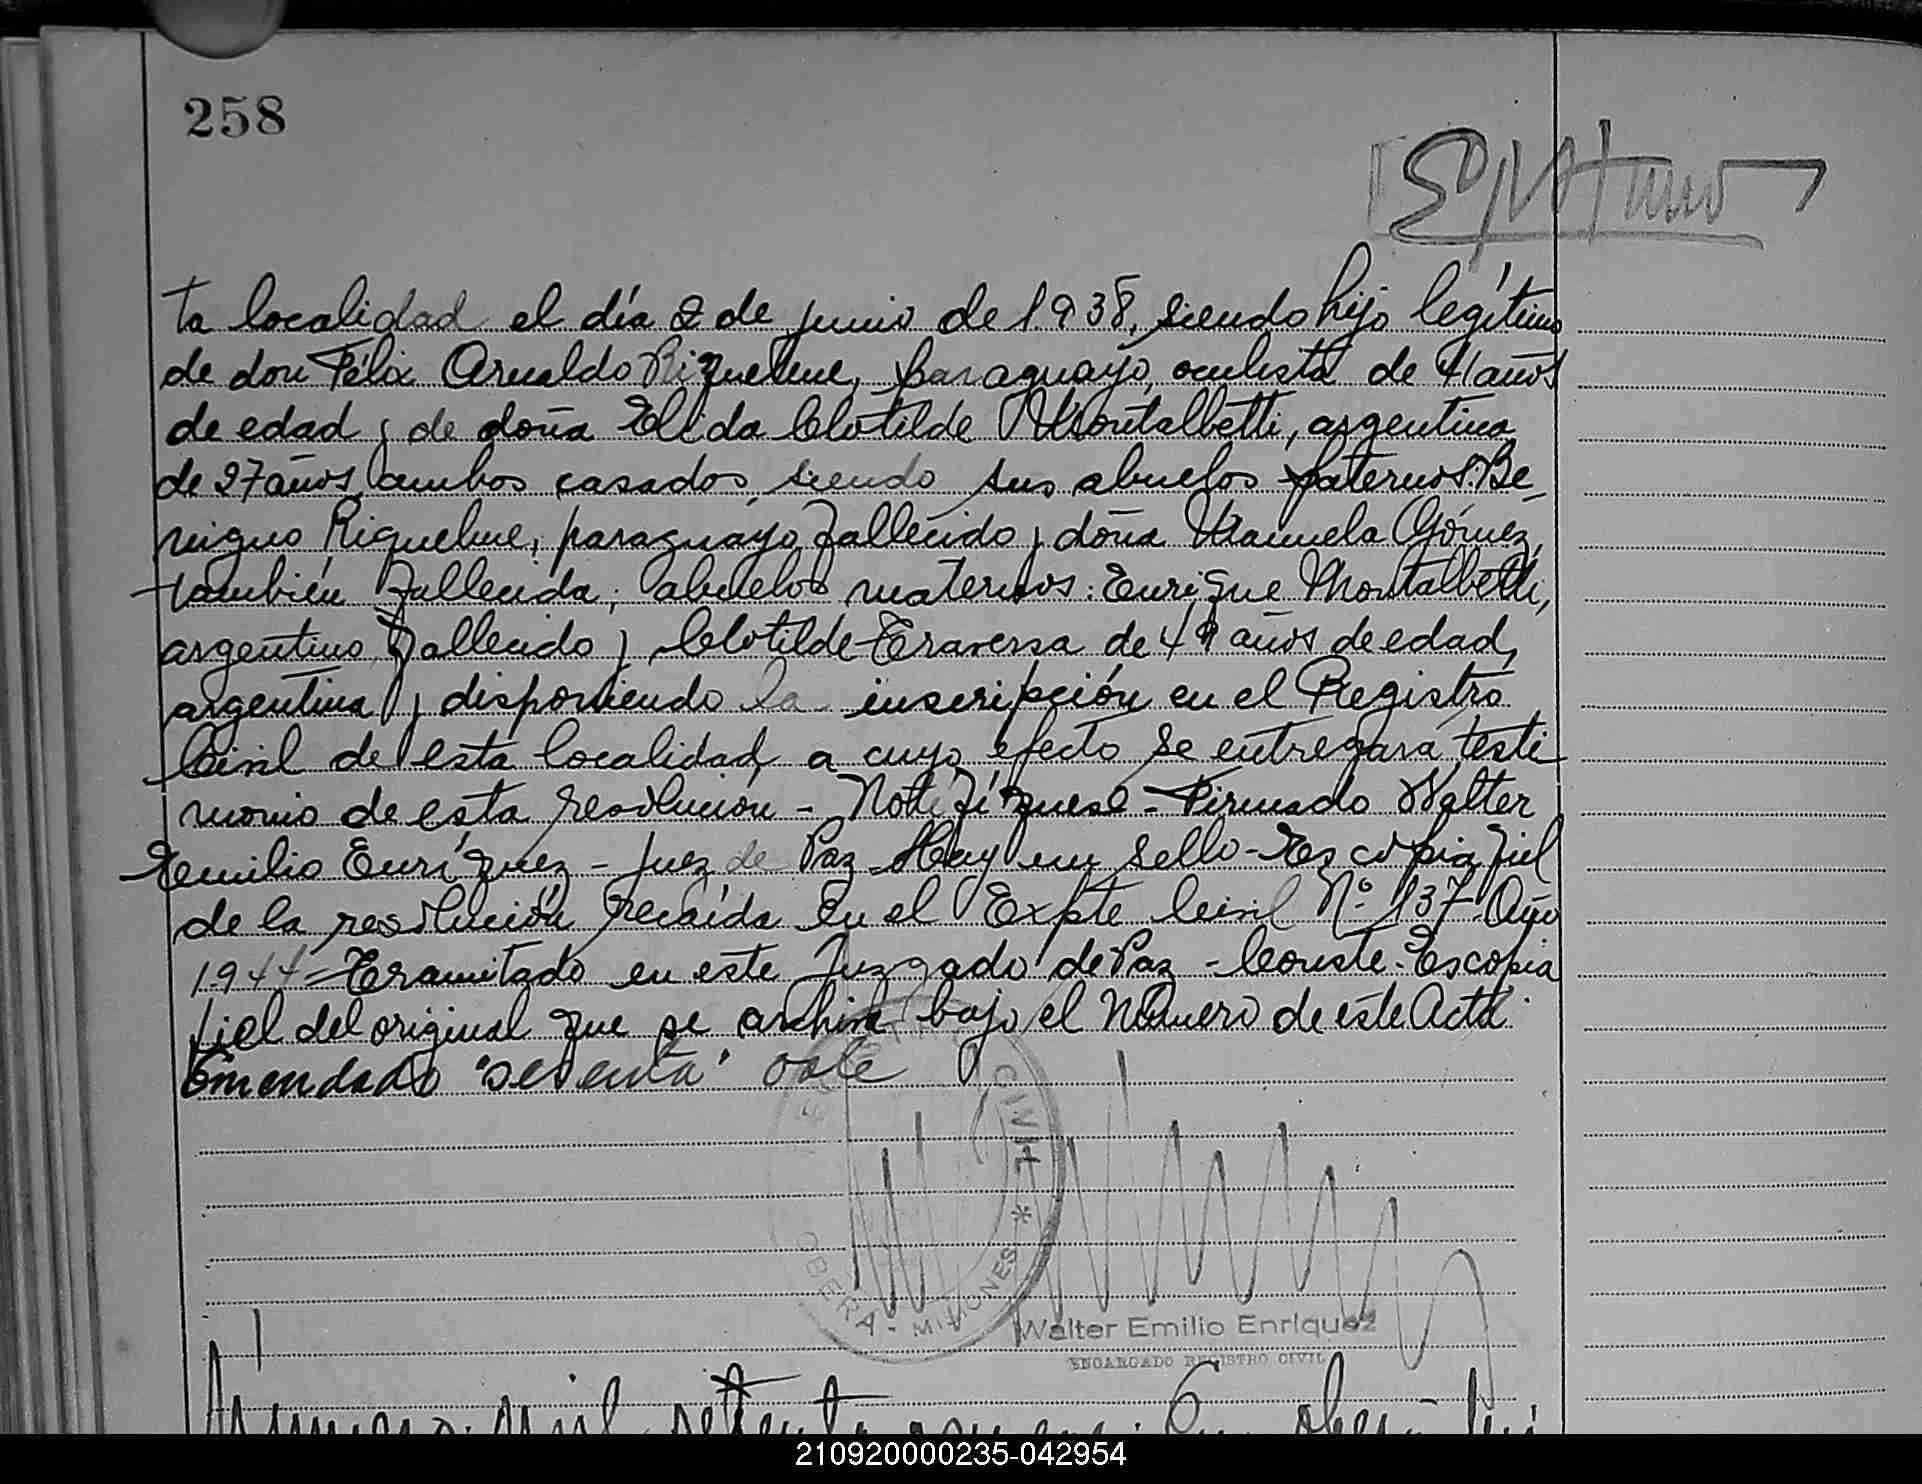 258
ta localidad el día 2 de junio de 1.938, siendo hijo legítimo
de don Félix Arnaldo Riquelme, paraguayo, oculista de 41 años
de edad y de doña Elida Clotilde Montalbetti, argentina
de 27 años, ambos casados, siendo sus abuelos paternos: Be-
nigno Riquelme, paraguayo, fallecido y doña Manuela Gómez,
también fallecida; abuelos maternos: Enrique Montalbetti,
argentino, fallecido y Clotilde Traversa de 49 años de edad,
argentina y disponiendo la inscripción en el Registro
Civil de esta localidad, a cuyo efecto se entregará testi
monio de esta resolución - Notifíquese - Firmado Walter
Emilio Enríquez - Juez de Paz - Hay un sello - Es copia fiel
de la resolución recaída en el Expte Civil Nº 137 - Año
1.944 = Tramitado en este Juzgado de Paz - Conste - Es copia
fiel del original que se archiva bajo el Número de este Acta
Emendado "setenta" vale
CIVIL *
OBERA - MISIONES
Walter Emilio Enriquez
ENCARGADO REGISTRO CIVIL
210920000235-042954